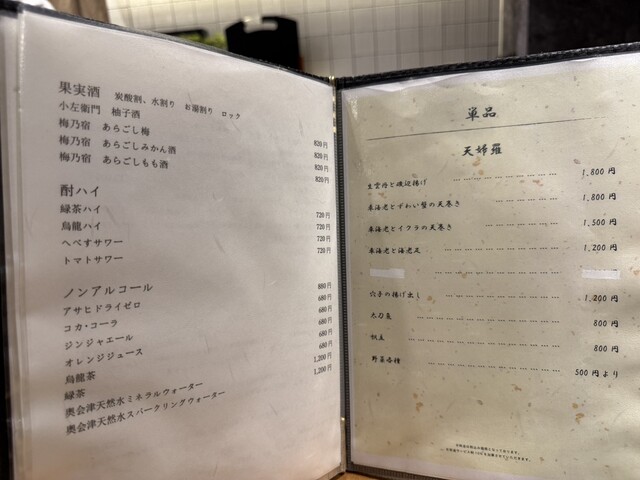 果実酒 炭酸割、水割り お湯割り ロック
小左衛門 柚子酒 820円
梅乃宿 あらごし梅 820円
梅乃宿 あらごしみかん酒 820円
梅乃宿 あらごしもも酒 820円
酎ハイ
緑茶ハイ 720円
烏龍ハイ 720円
へべすサワー 720円
トマトサワー 720円
ノンアルコール
アサヒドライゼロ 680円
コカ・コーラ 680円
ジンジャエール 680円
オレンジジュース 680円
烏龍茶 680円
緑茶 680円
奥会津天然水ミネラルウォーター 1,200円
奥会津天然水スパークリングウォーター 1,200円
単品
天婦羅
生雲丹と磯辺揚げ 1,800円
車海老とずわい蟹の天巻き 1,800円
車海老とイクラの天巻き 1,500円
車海老と海老足 1,200円
穴子の揚げ出し 1,200円
太刀魚 800円
帆立 800円
野菜各種 500円より